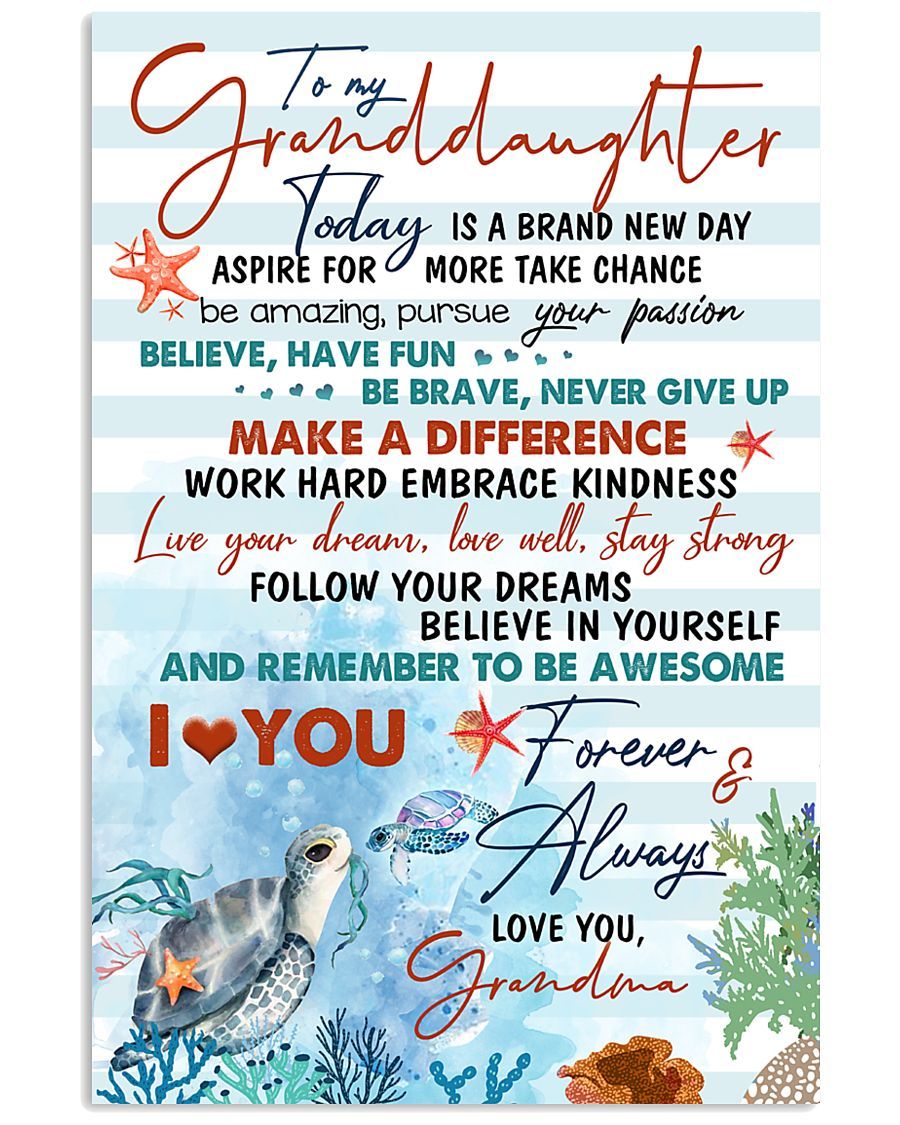 To my
Granddaughter
Today IS A BRAND NEW DAY
ASPIRE FOR MORE TAKE CHANCE
be amazing, pursue your passion
BELIEVE, HAVE FUN
BE BRAVE, NEVER GIVE UP
MAKE A DIFFERENCE
WORK HARD EMBRACE KINDNESS
Live your dream, love well, stay strong
FOLLOW YOUR DREAMS
BELIEVE IN YOURSELF
AND REMEMBER TO BE AWESOME
I ♥ YOU
Forever &
Always
LOVE YOU,
Grandma